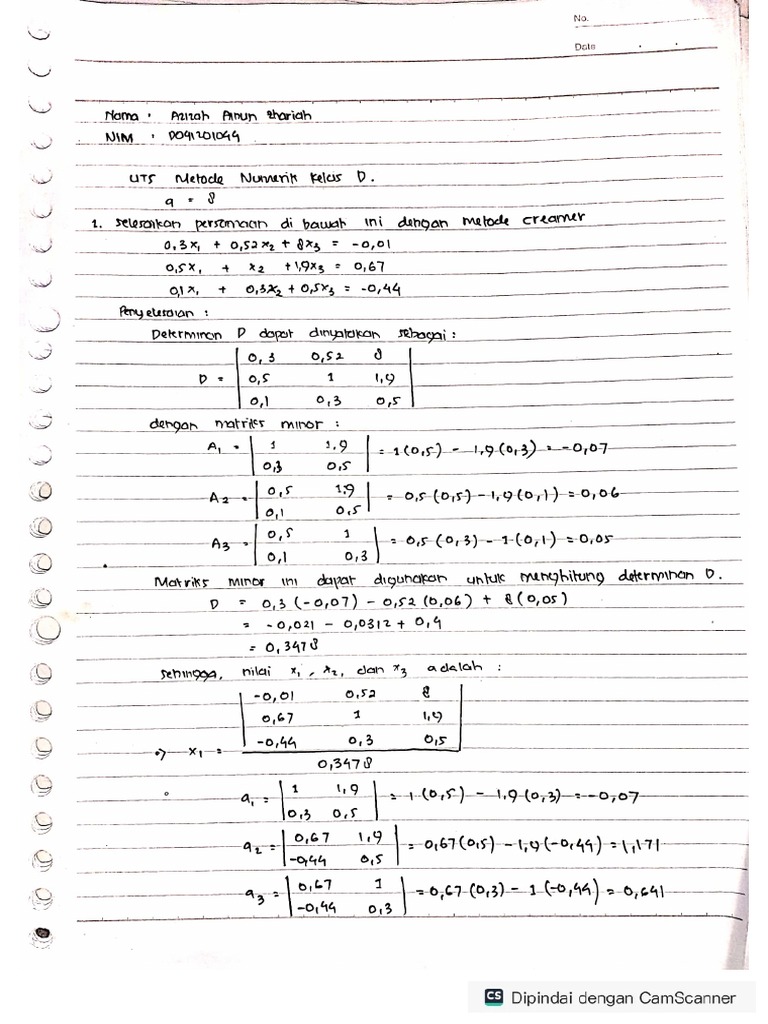 No.
Date
Nama : Azizah Ainun Shariah
NIM : D041201044
UTS Metode Numerik Kelas D.
a = 8
1. Selesaikan persamaan di bawah ini dengan metode creamer
0,3x₁ + 0,52x₂ + 8x₃ = -0,01
0,5x₁ + x₂ + 1,9x₃ = 0,67
0,1x₁ + 0,3x₂ + 0,5x₃ = -0,44
Penyelesaian :
Determinan D dapat dinyatakan sebagai :
| 0,3 0,52 8 |
D = | 0,5 1 1,9 |
| 0,1 0,3 0,5 |
dengan matriks minor :
A₁ = | 1 1,9 | = 1(0,5) - 1,9(0,3) = -0,07
| 0,3 0,5 |
A₂ = | 0,5 1,9 | = 0,5(0,5) - 1,9(0,1) = 0,06
| 0,1 0,5 |
A₃ = | 0,5 1 | = 0,5(0,3) - 1(0,1) = 0,05
| 0,1 0,3 |
Matriks minor ini dapat digunakan untuk menghitung determinan D.
D = 0,3(-0,07) - 0,52(0,06) + 8(0,05)
= -0,021 - 0,0312 + 0,4
= 0,3478
Sehingga, nilai x₁, x₂, dan x₃ adalah :
| -0,01 0,52 8 |
| 0,67 1 1,9 |
| -0,44 0,3 0,5 |
•> x₁ =
0,3478
a₁ = | 1 1,9 | = 1(0,5) - 1,9(0,3) = -0,07
| 0,3 0,5 |
a₂ = | 0,67 1,9 | = 0,67(0,5) - 1,9(-0,44) = 1,171
| -0,44 0,5 |
a₃ = | 0,67 1 | = 0,67(0,3) - 1(-0,44) = 0,641
| -0,44 0,3 |
CS Dipindai dengan CamScanner